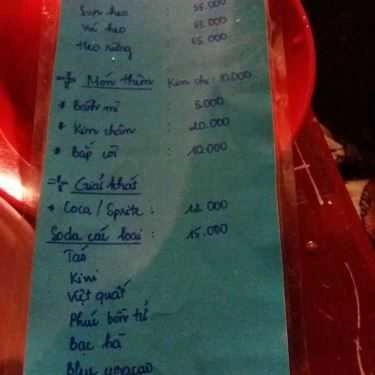 Sụn heo : 55.000
Vú heo : 65.000
Heo rừng : 65.000
=> Món thêm Kim chi : 10.000
* Bánh mì : 5.000
* Kim châm : 20.000
* Bắp cải : 10.000
=> Giải khát
* Coca / Sprite : 12.000
Soda các loại : 15.000
Táo
Kiwi
Việt quất
Phúc bồn tử
Bạc hà
Blue curacao